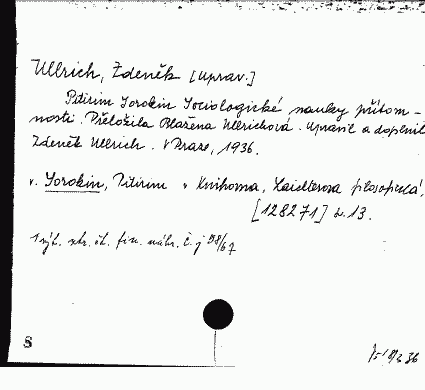 Ullrich, Zdeněk [uprav.]
Pitirim Sorokin Sociologické nauky přítom-
nosti. Přeložila Blažena Ullrichová. Upravil a doplnil
Zdeněk Ullrich. V Praze, 1936.
v. Sorokin, Pitirim v Knihovna, Laichterova filosofická,
[128271] sv. 13.
fin. náhr. č. j 58/67
S